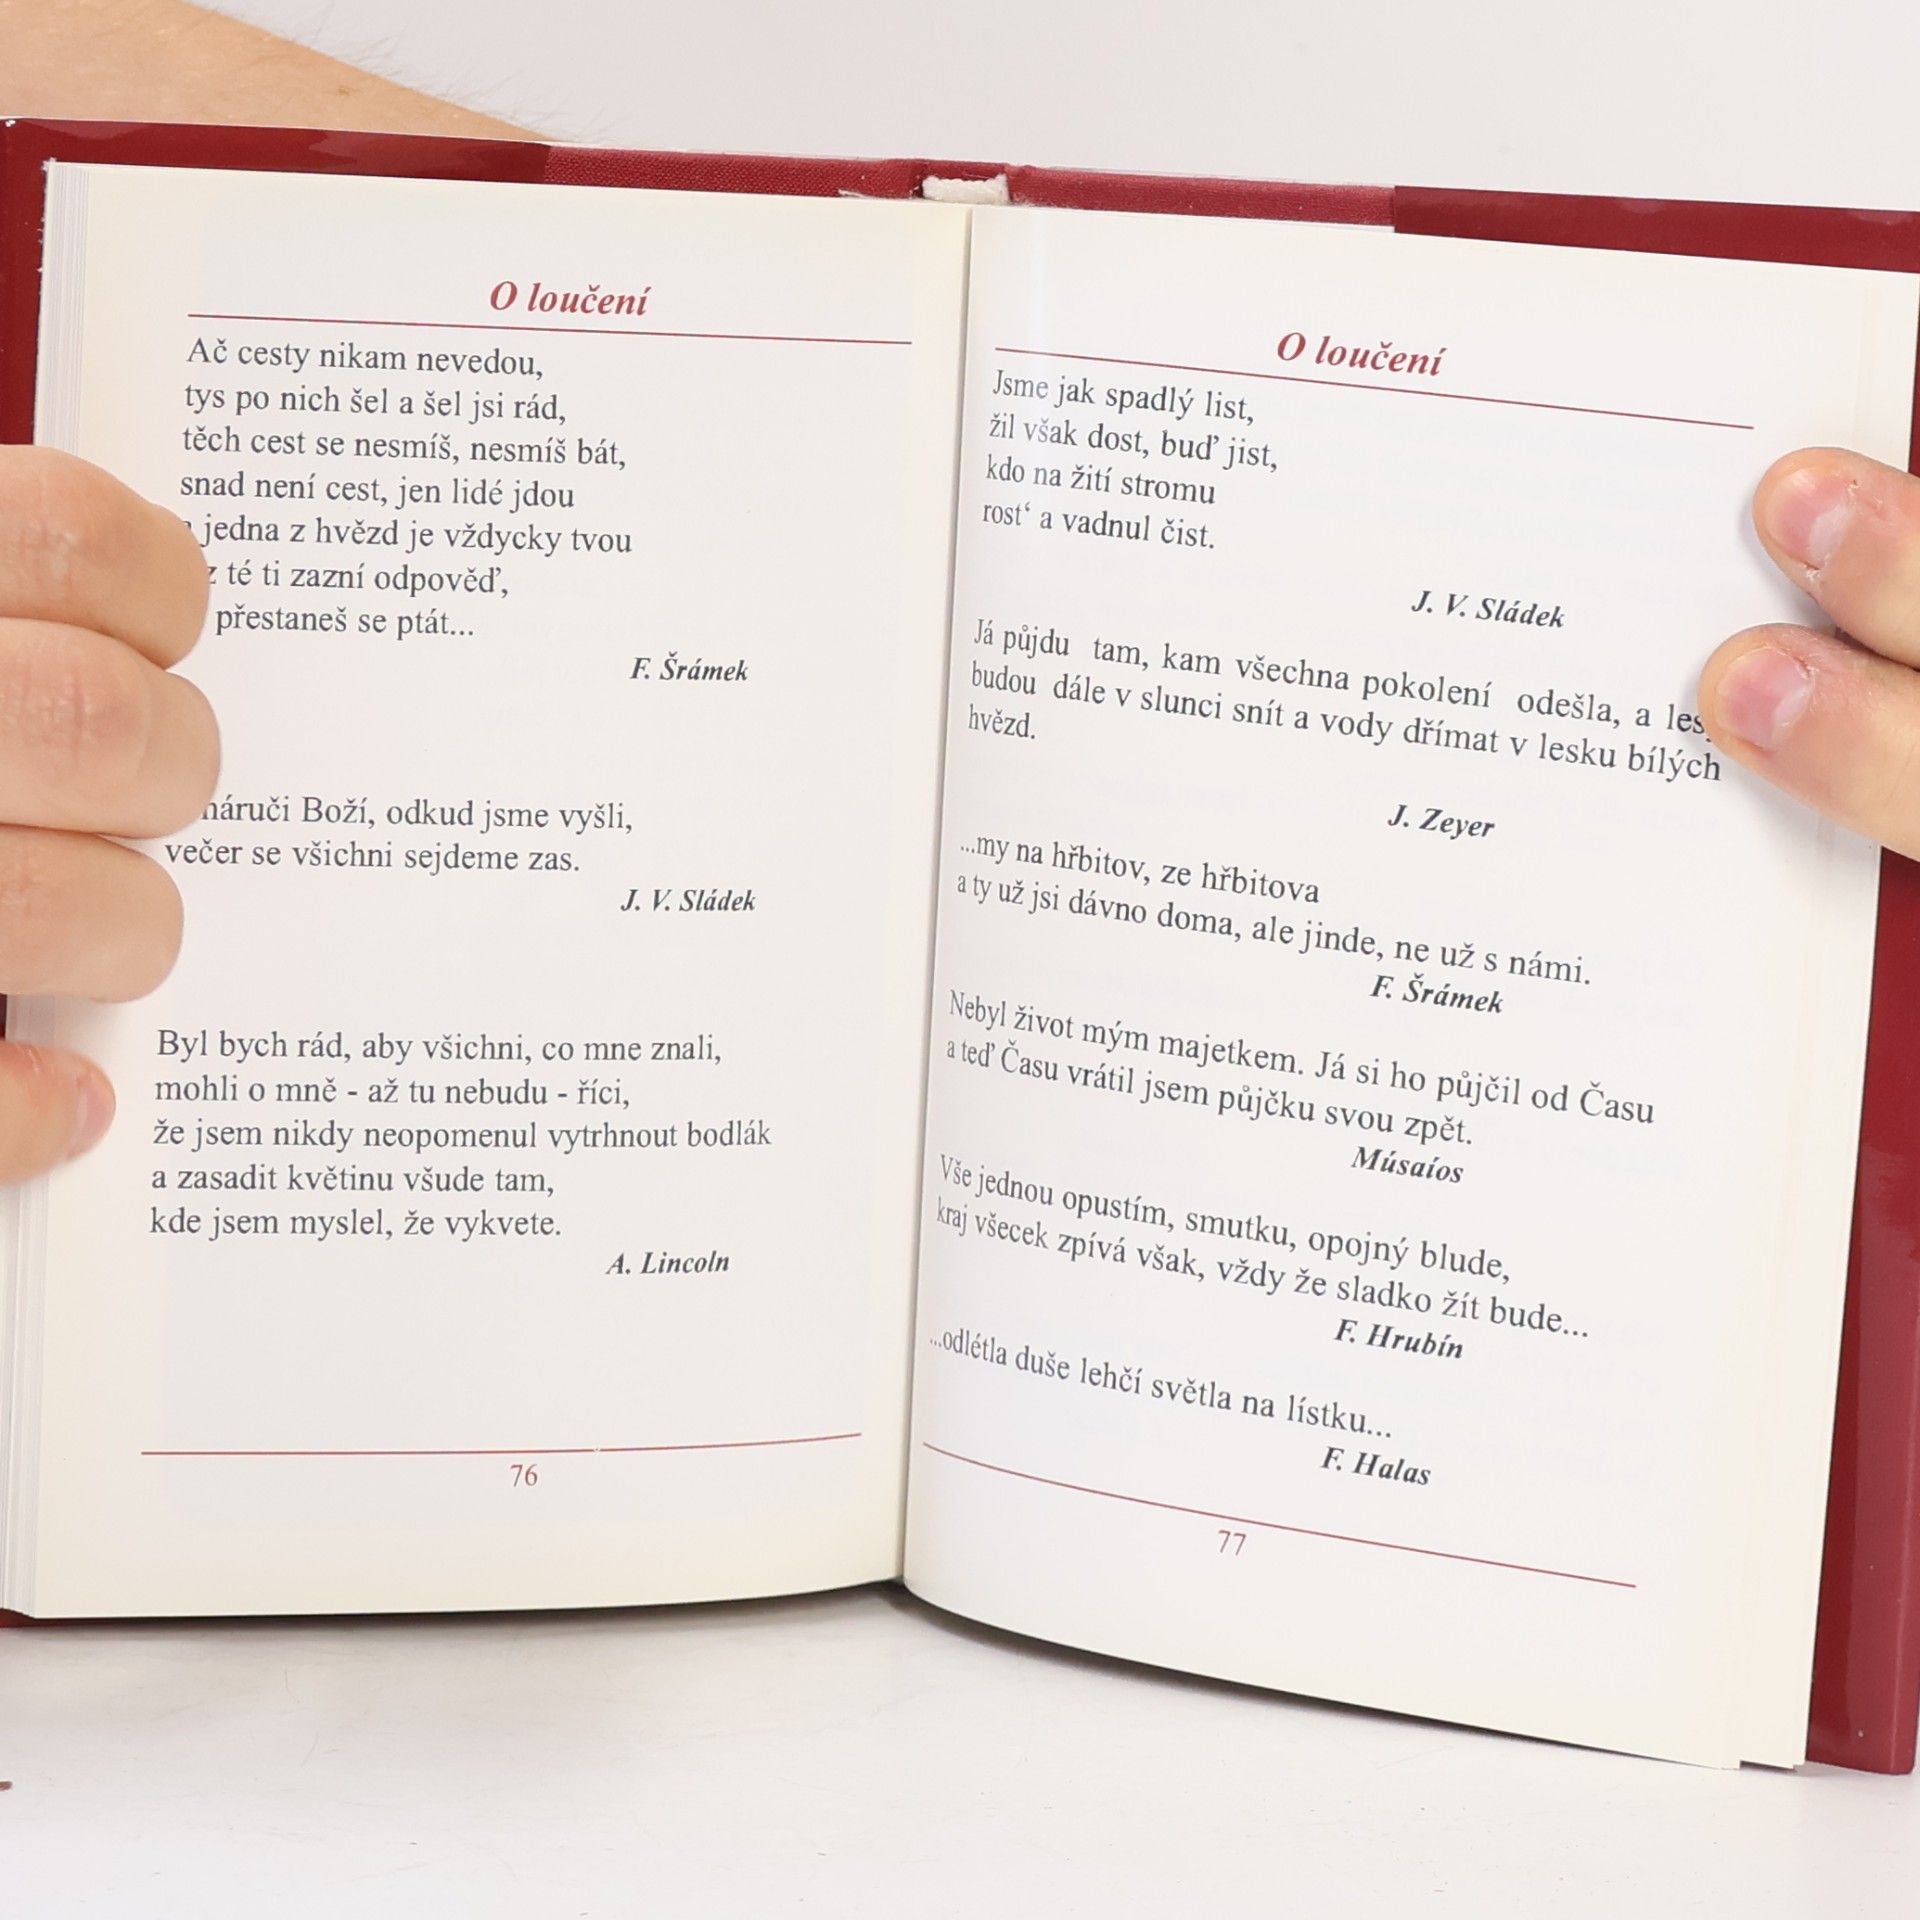 O loučení
Ač cesty nikam nevedou,
tys po nich šel a šel jsi rád,
těch cest se nesmíš, nesmíš bát,
snad není cest, jen lidé jdou
jedna z hvězd je vždycky tvou
z té ti zazní odpověď,
přestaneš se ptát...
F. Šrámek
náruči Boží, odkud jsme vyšli,
večer se všichni sejdeme zas.
J. V. Sládek
Byl bych rád, aby všichni, co mne znali,
mohli o mně - až tu nebudu - říci,
že jsem nikdy neopomenul vytrhnout bodlák
a zasadit květinu všude tam,
kde jsem myslel, že vykvete.
A. Lincoln
76
O loučení
Jsme jak spadlý list,
žil však dost, buď jist,
kdo na žití stromu
rost‘ a vadnul čist.
J. V. Sládek
Já půjdu tam, kam všechna pokolení odešla, a lesy
budou dále v slunci snít a vody dřímat v lesku bílých
hvězd.
J. Zeyer
...my na hřbitov, ze hřbitova
a ty už jsi dávno doma, ale jinde, ne už s námi.
F. Šrámek
Nebyl život mým majetkem. Já si ho půjčil od Času
a teď Času vrátil jsem půjčku svou zpět.
Músaíos
Vše jednou opustím, smutku, opojný blude,
kraj všecek zpívá však, vždy že sladko žít bude...
F. Hrubín
...odlétla duše lehčí světla na lístku...
F. Halas
77